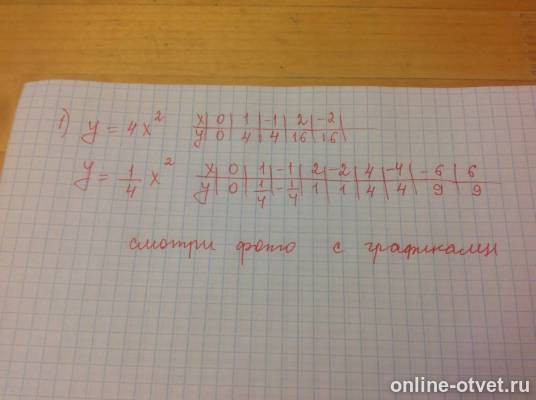 1) y = 4x² x | 0 | 1 | -1 | 2 | -2
y | 0 | 4 | 4 | 16 | 16
y = 1/4 x² x | 0 | 1 | -1 | 2 | -2 | 4 | -4 | -6 | 6
y | 0 | 1/4 | -1/4 | 1 | 1 | 4 | 4 | 9 | 9
смотри фото с графиками
online-otvet.ru